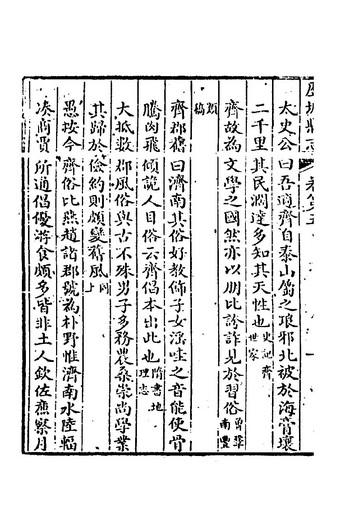 太史公曰吾適齊自泰山屬之琅邪北被於海膏壤
二千里其民濶達多知其天性也史記齊世家
齊故為文學之國然亦以朋比訡詐見於習俗曾鞏南豐
類稿
齊郡舊曰濟南其俗好教飾子女淫哇之音能使骨
騰肉飛傾詭人目俗云齊倡本出此也隋書地理志
大抵數郡風俗與古不殊男子多務農桑崇尚學業
其歸於儉約則頗變舊風同上
愚按今齊俗比燕趙諸郡號為朴野惟濟南水陸輻
湊商賈所通倡優游食頗多皆非土人欽佐廉察月